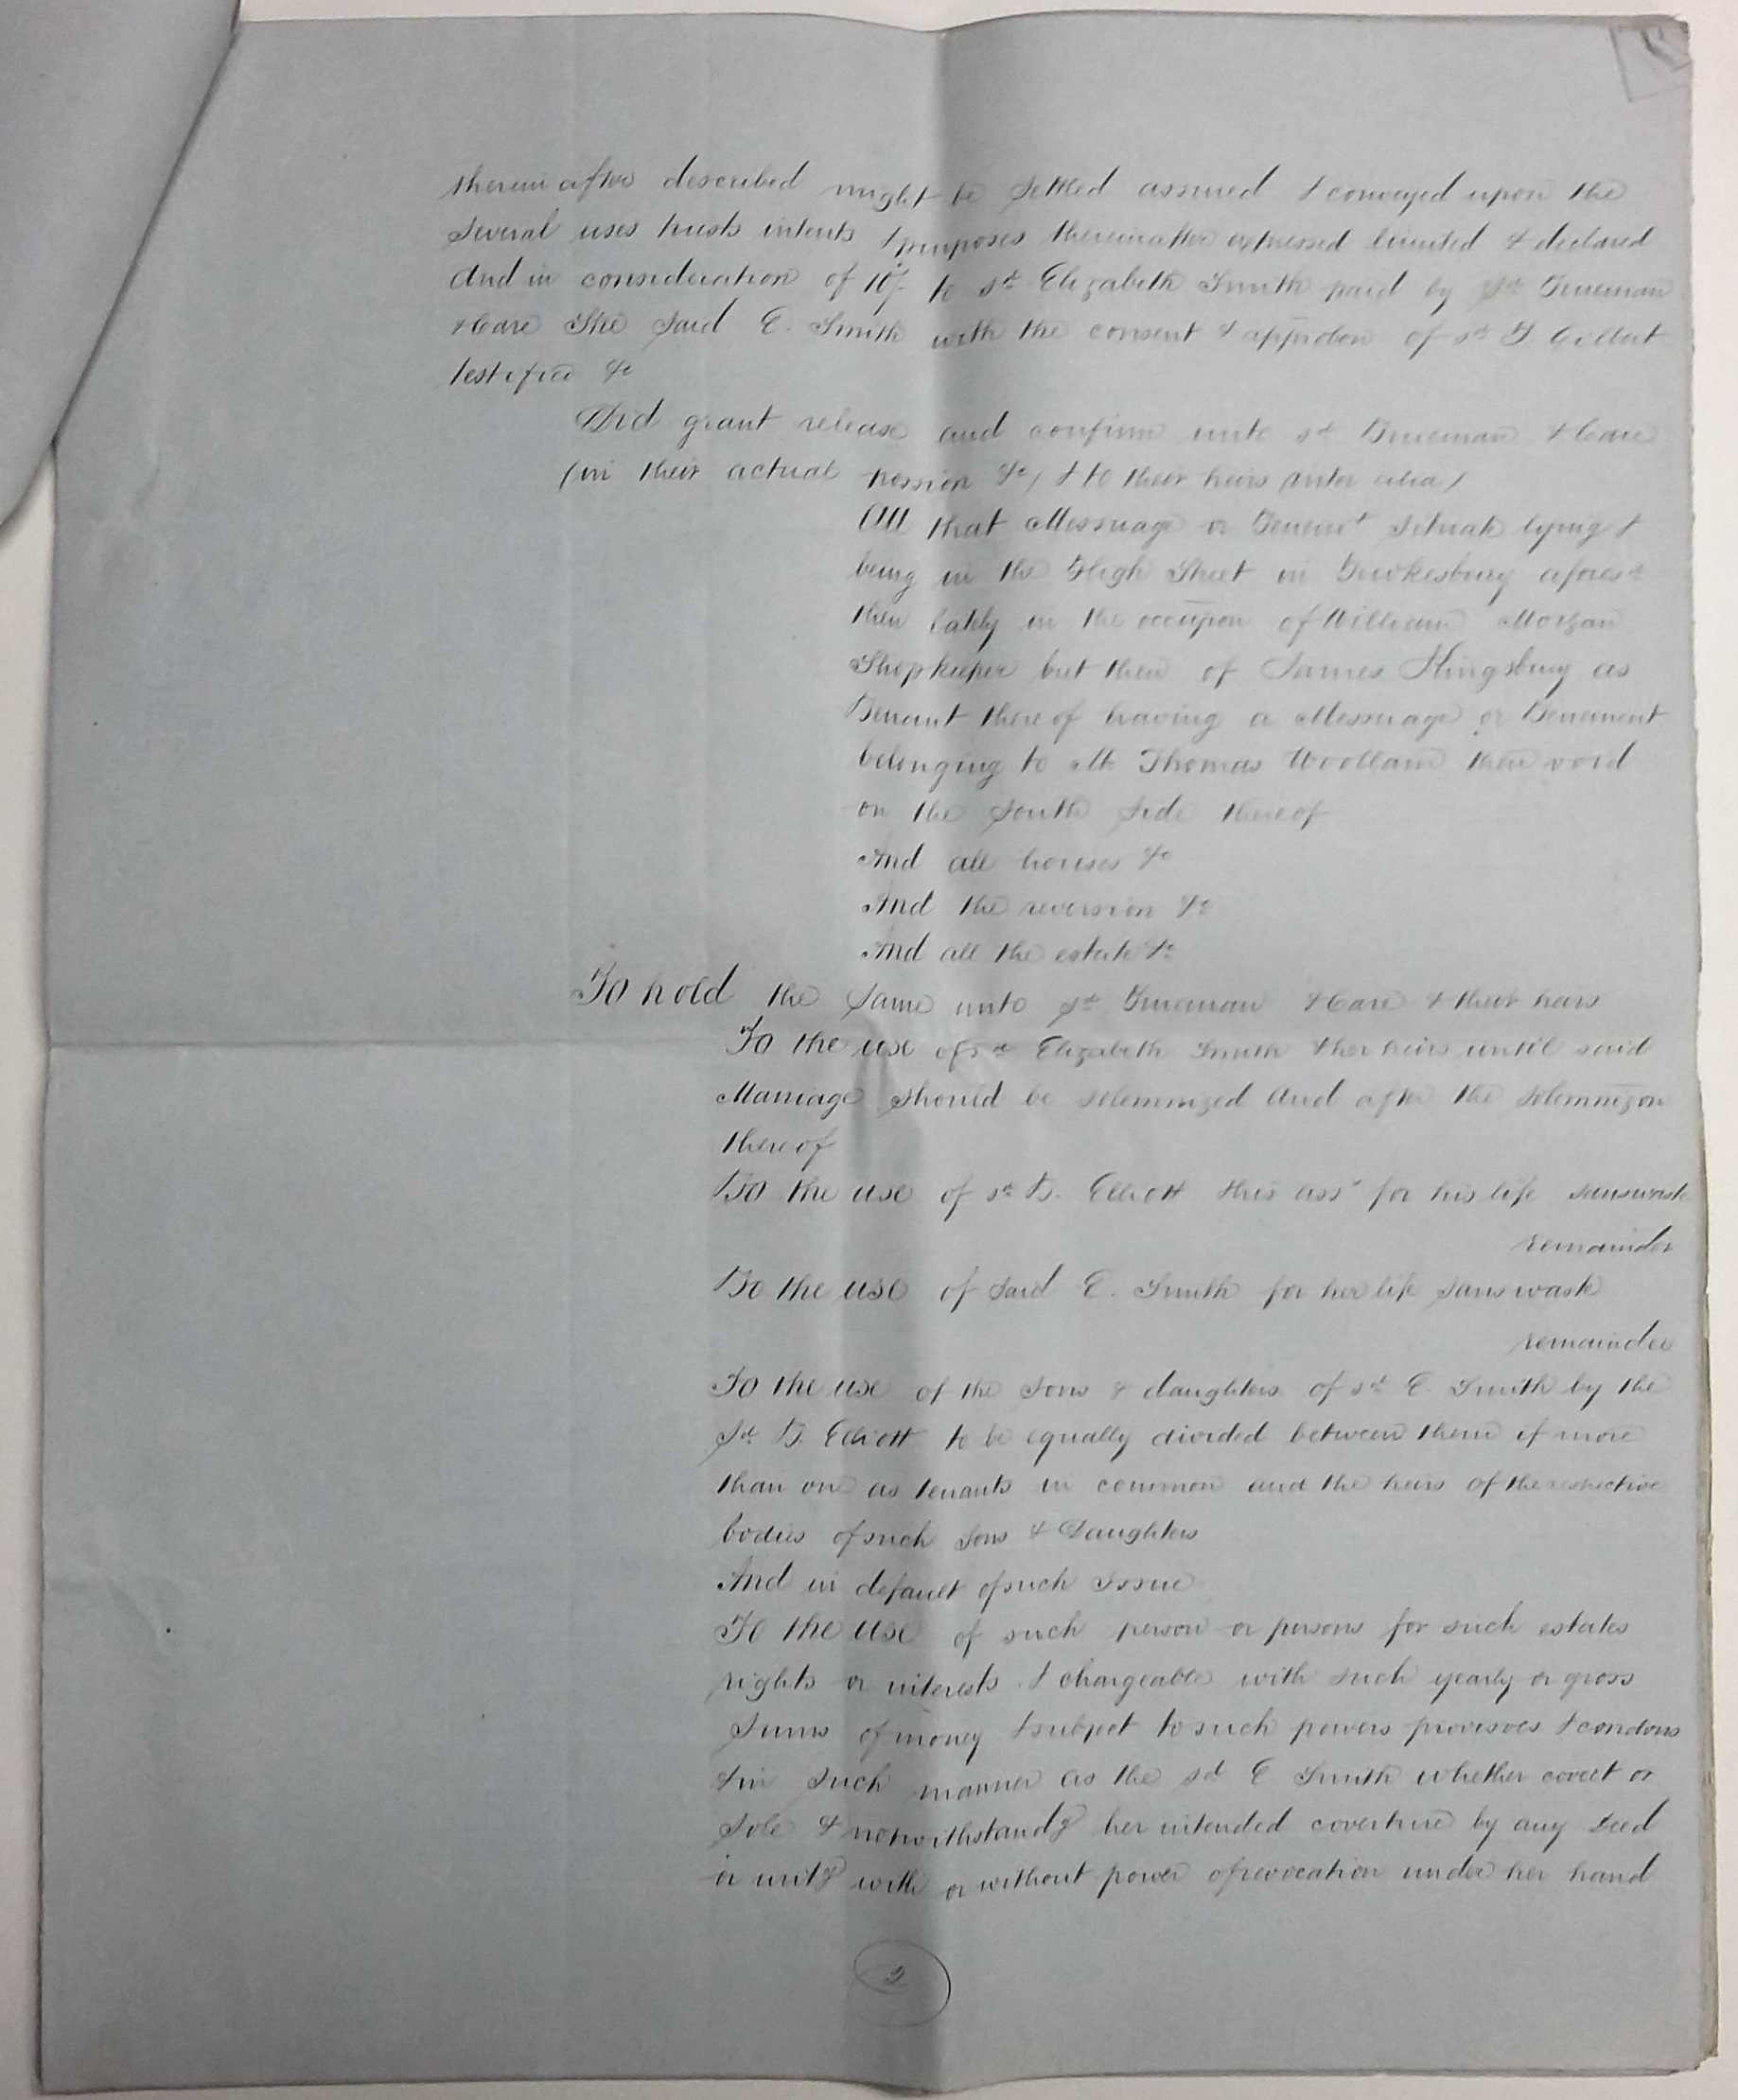 therein after described might be settled assured & conveyed upon the
several uses trusts intents & purposes thereinafter expressed limited & declared
And in consideration of 10/- to sd Elizabeth Smith paid by sd Trueman
& Care She said E. Smith with the consent & approbon of sd T. Gilbert
testified &c
Did grant release and confirm unto sd Trueman & Care
(in their actual possion &c) & to their heirs (inter alia)
All that Messuage or Tenemt situate lying &
being in the High Street in Tewkesbury aforesd
then lately in the occupon of William Morgan
Shopkeeper but then of James Kingsbury as
Tenant thereof having a Messuage or Tenement
belonging to Mr Thomas Woollam then void
on the South side thereof
And all houses &c
And the reversion &c
And all the estate &c
To hold the same unto sd Trueman & Care & their heirs
To the use of sd Elizabeth Smith & her heirs until said
Marriage should be solemnized And after the solemnizon
thereof
To the use of sd T. Elliott & his ass for his life sans waste
remainder
To the use of said E. Smith for her life sans waste
remainder
To the use of the sons & daughters of sd E. Smith by the
sd T. Elliott to be equally divided between them if more
than one as tenants in common and the heirs of the respective
bodies of such sons & Daughters
And in default of such issue
To the use of such person or persons for such estates
rights or interests & chargeable with such yearly or gross
sums of money & subject to such powers provisoes & condons
& in such manner as the sd E Smith whether covert or
sole & notwithstandg her intended coverture by any Deed
or writg with or without power of revocation under her hand
2